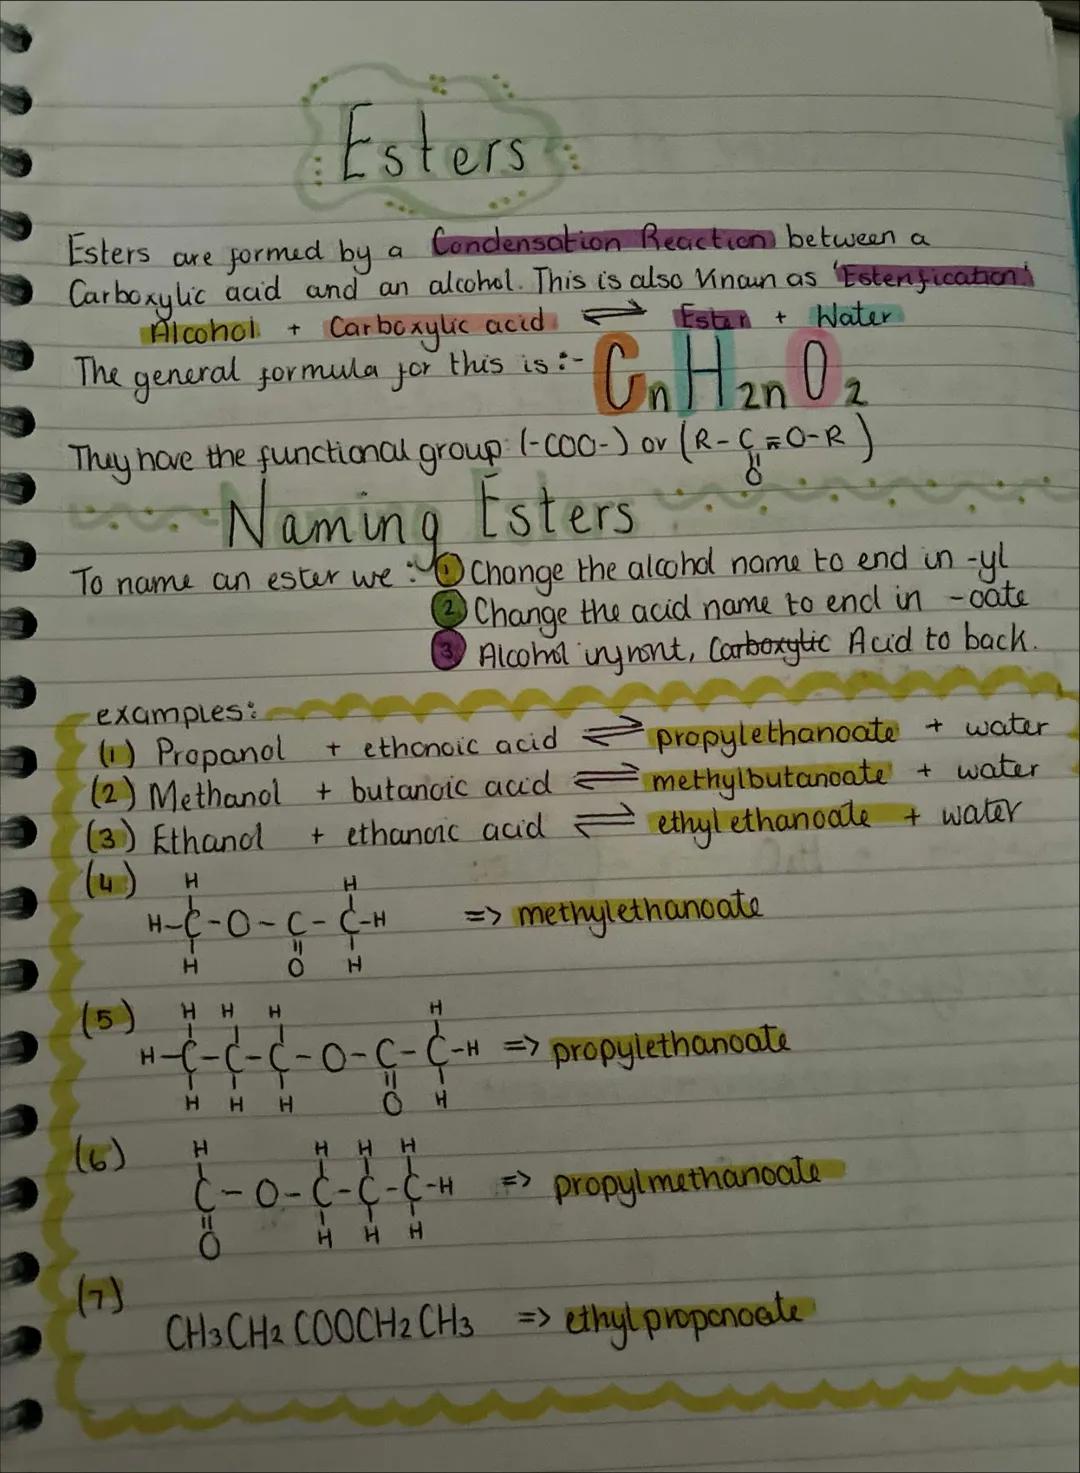 Esters
Esters are formed by a Condensation Reaction between a
Carboxylic acid and an alcohol. This is also Known as 'Esterification'
Alcohol + Carboxylic acid ⇌ Ester + Water
The general formula for this is :- CnH2nO2
They have the functional group: (-COO-) or (R-C=O-R)
||
O
Naming Esters
To name an ester we : 1 Change the alcohol name to end in -yl
2 Change the acid name to end in -oate
3 Alcohol infront, Carboxylic Acid to back.
examples:
(1) Propanol + ethanoic acid ⇌ propylethanoate + water
(2) Methanol + butanoic acid ⇌ methylbutanoate + water
(3) Ethanol + ethanoic acid ⇌ ethyl ethanoate + water
(4) H H
H-C-O-C-C-H => methylethanoate
H O H
(5) H H H H
H-C-C-C-O-C-C-H => propylethanoate
H H H O H
(6) H H H H
C-O-C-C-C-H => propylmethanoate
O H H H
(7)
CH3CH2COOCH2CH3 => ethylpropanoate